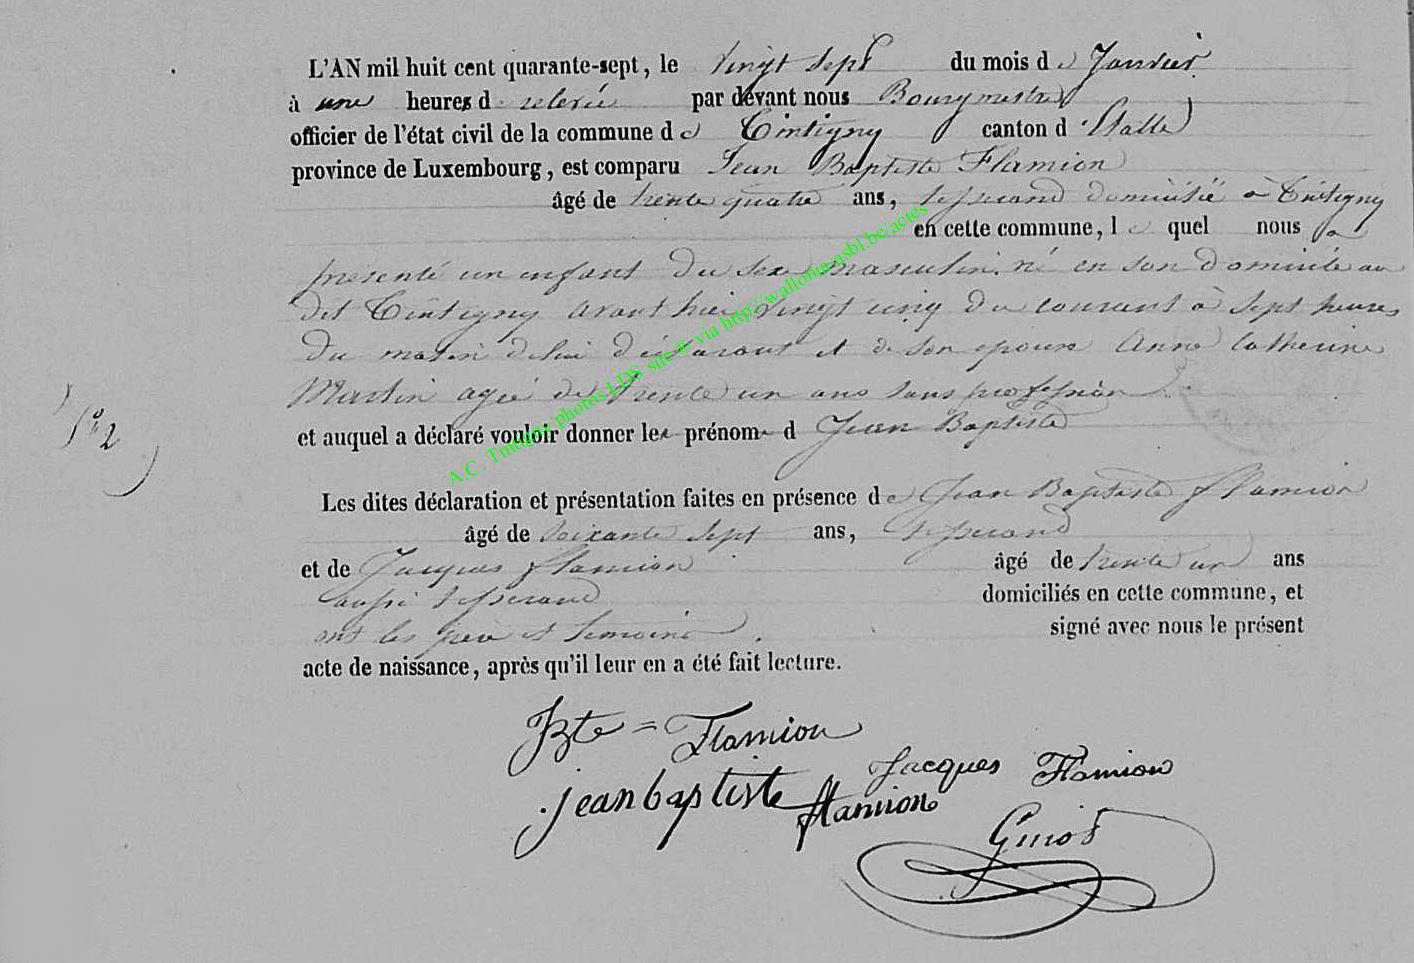 L'AN mil huit cent quarante-sept, le vingt sept du mois de Janvier
à une heures de relevée par devant nous Bourgmestre
officier de l'état civil de la commune de Tintigny canton d'Etalle
province de Luxembourg, est comparu Jean Baptiste Flamion
âgé de trente quatre ans, tisserand domicilié à Tintigny
en cette commune, lequel nous a
présenté un enfant du sexe masculin né en son domicile au
dit Tintigny avant hier vingt cinq du courant à sept heures
du matin de lui déclarant et de son epouse Anne Catherine
Martin agée de trente un ans sans profession
et auquel a déclaré vouloir donner les prénom d Jean Baptiste
N° 2
Les dites déclaration et présentation faites en présence de Jean Baptiste Flamion
âgé de soixante sept ans, tisserand
et de Jacques Flamion âgé de trente un ans
aussi tisserand domiciliés en cette commune, et
ont les père et temoins signé avec nous le présent
acte de naissance, après qu'il leur en a été fait lecture.
JBte = Flamion
Jacques Flamion
jean baptiste flamion
Guiot
A.C. Tintigny photos LDS site © via http://wallonia-asbl.be/actes